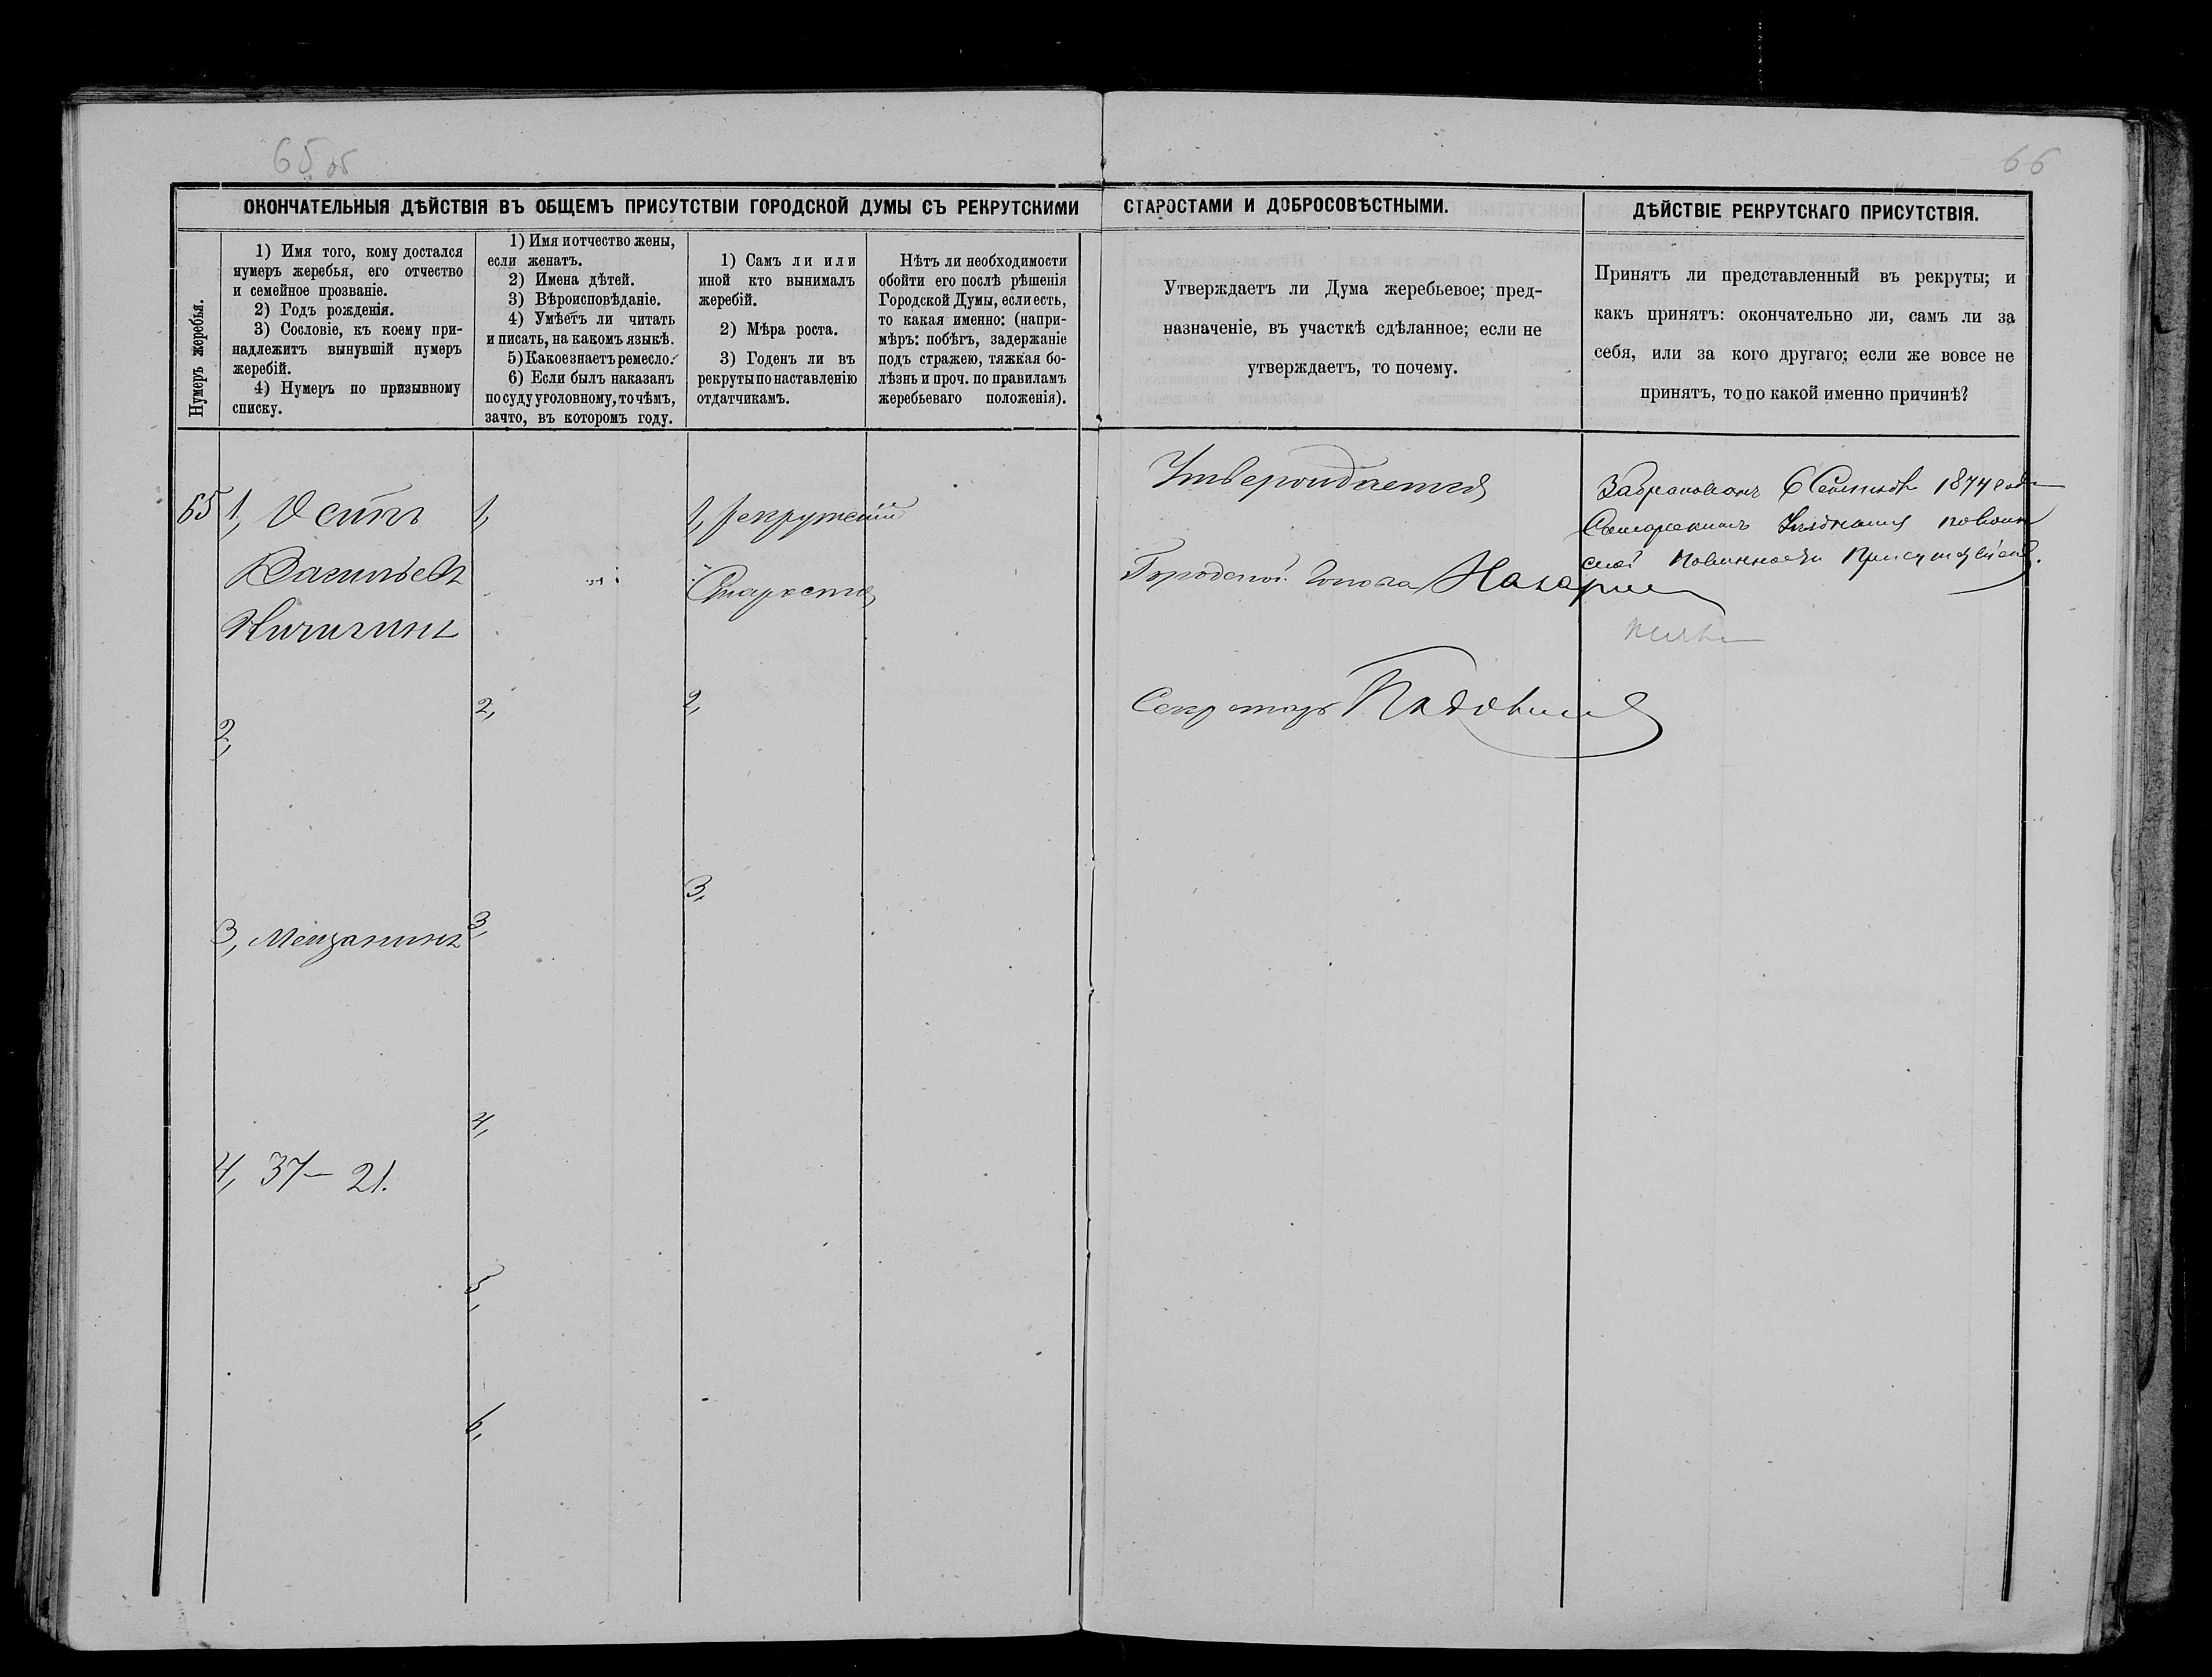 65 об
66
ОКОНЧАТЕЛЬНЫЯ ДѢЙСТВІЯ ВЪ ОБЩЕМЪ ПРИСУТСТВІИ ГОРОДСКОЙ ДУМЫ СЪ РЕКРУТСКИМИ СТАРОСТАМИ И ДОБРОСОВѢСТНЫМИ.
ДѢЙСТВІЕ РЕКРУТСКАГО ПРИСУТСТВІЯ.
Нумеръ жеребья.
1) Имя того, кому достался
нумеръ жеребья, его отчество
и семейное прозваніе.
2) Годъ рожденія.
3) Сословіе, къ коему при-
надлежитъ вынувшій нумеръ
жеребій.
4) Нумеръ по призывному
списку.
1) Имя и отчество жены,
если женатъ.
2) Имена дѣтей.
3) Вѣроисповѣданіе.
4) Умѣетъ ли читать
и писать, на какомъ языкѣ.
5) Какое знаетъ ремесло.
6) Если былъ наказанъ
по суду уголовному, то чѣмъ,
за что, въ которомъ году.
1) Самъ ли или
иной кто вынималъ
жеребій.
2) Мѣра роста.
3) Годенъ ли въ
рекруты по наставленію
отдатчикамъ.
Нѣтъ ли необходимости
обойти его послѣ рѣшенія
Городской Думы, если есть,
то какая именно: (напри-
мѣръ: побѣгъ, задержаніе
подъ стражею, тяжкая бо-
лѣзнь и проч. по правиламъ
жеребьеваго положенія).
Утверждаетъ ли Дума жеребьевое; пред-
назначеніе, въ участкѣ сдѣланное; если не
утверждаетъ, то почему.
Принятъ ли представленный въ рекруты; и
какъ принятъ: окончательно ли, самъ ли за
себя, или за кого другаго; если же вовсе не
принятъ, то по какой именно причинѣ?
65
1, Осипъ
Васильевъ
Ничигинъ
2,
3, Мещанинъ
4, 37— 21.
1,
2,
3,
4,
5,
6,
1, рекрутскій
Староста
2,
3,
Утверждается
Городской Голова
Секретарь
Забракованъ 6 1874 года
Самарскимъ Уѣзднымъ по воин
ской повинности Присутствіемъ.